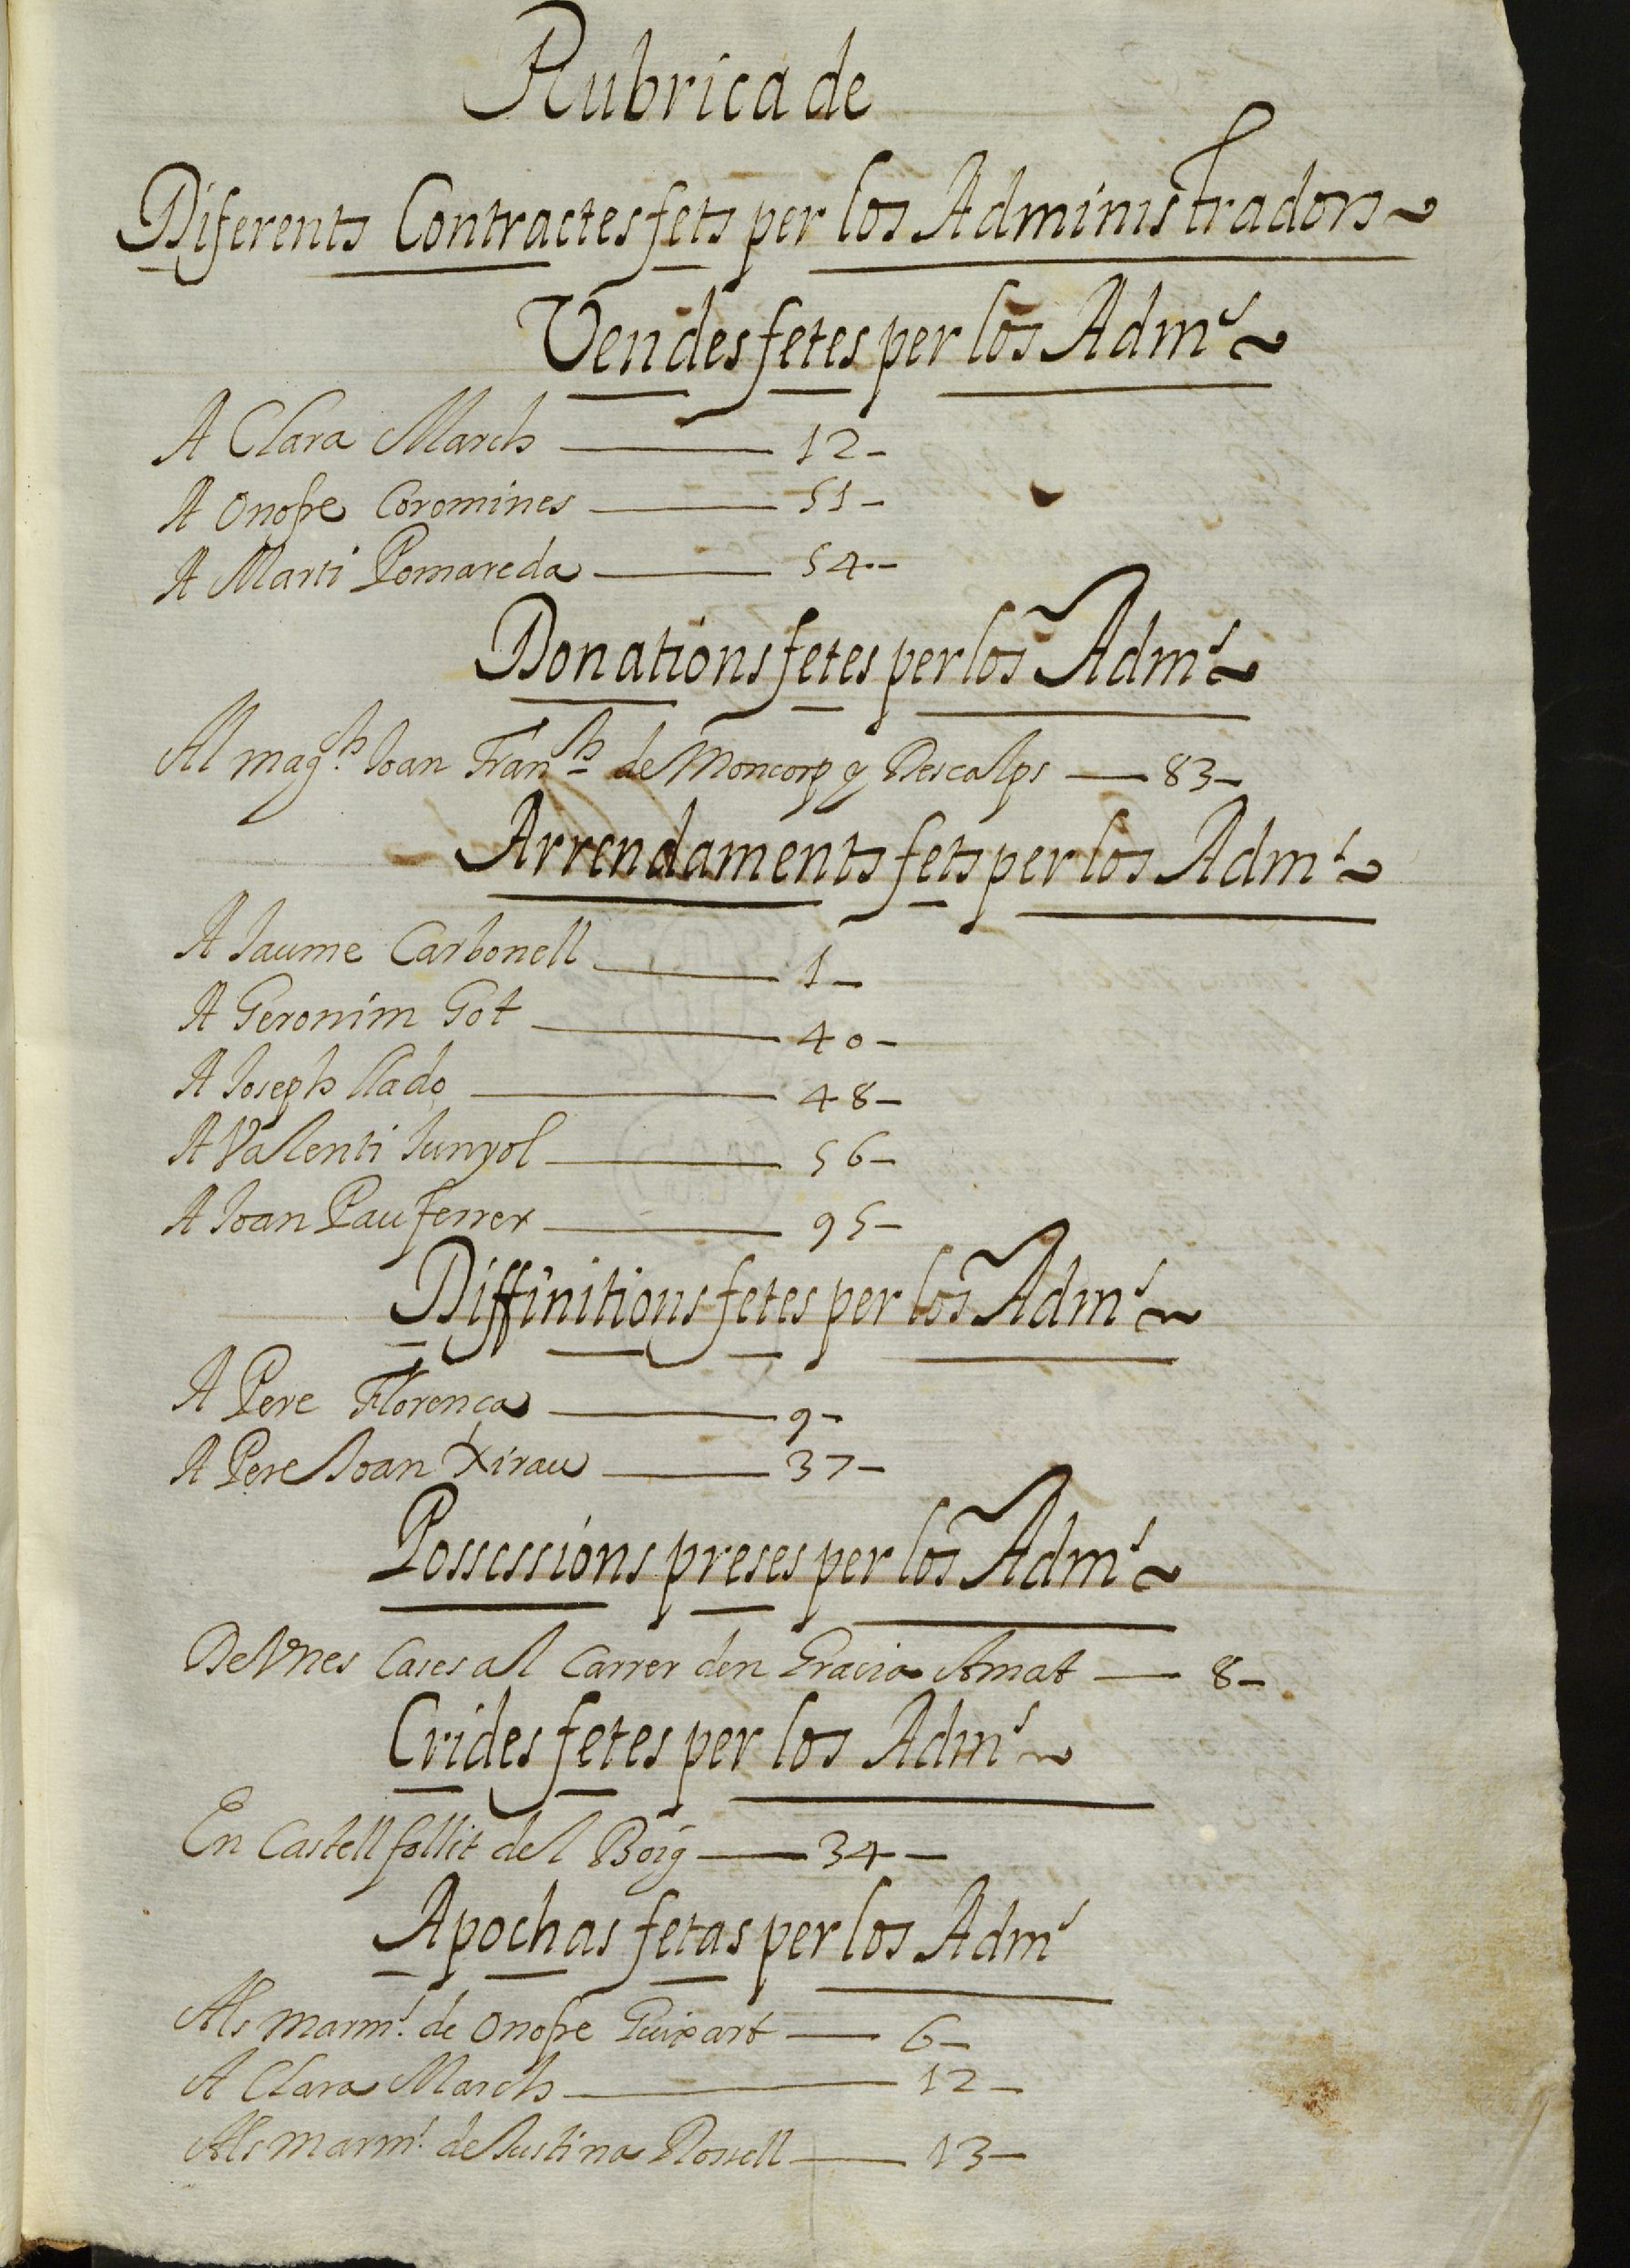 Rubrica de
Diferents Contractes fets per los Administradors
Vendes fetes per los Adm.s
A Clara March —— 12 -
A Onofre Coromines —— 51 -
A Marti Pomareda —— 54 -
Donations fetes per los Adm.s
Al mag.ch Joan Fran.ch de Moncorp y Descalps —— 83 -
Arrendaments fets per los Adm.s
A Jaume Carbonell —— 1 -
A Geronim Got —— 40 -
A Joseph llado —— 48 -
A Valenti Junyol —— 56 -
A Joan Pau ferrer —— 95 -
Diffinitions fetes per los Adm.s
A Pere Florença —— 9 -
A Pere Joan Xirau —— 37 -
Possessions preses per los Adm.s
De Vnes Cases al Carrer den Gracia Amat —— 8 -
Crides fetes per los Adm.s
En Castellfollit del Boig —— 34 -
Apochas fetas per los Adm.s
Als marm.s de Onofre Guixart —— 6 -
A Clara March —— 12 -
Als marm.s de Justina Rossell —— 13 -